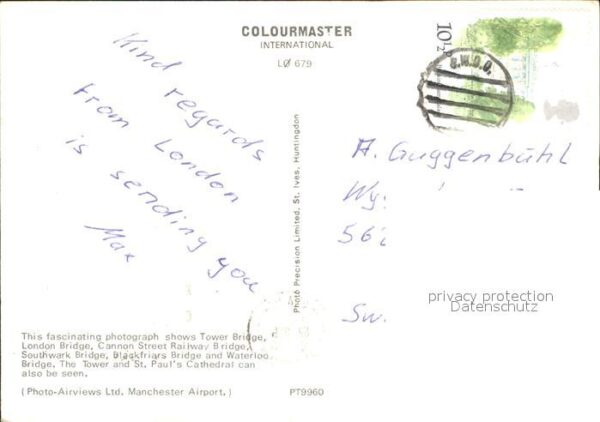 COLOURMASTER
INTERNATIONAL
LØ 679
Kind regards
from London
is sending you
Max
Photo Precision Limited, St. Ives, Huntingdon
10½P
G.W.D.O.
A. Guggenbühl
Wy
56
Sw.
privacy protection
Datenschutz
This fascinating photograph shows Tower Bridge,
London Bridge, Cannon Street Railway Bridge,
Southwark Bridge, Blackfriars Bridge and Waterloo
Bridge. The Tower and St. Paul's Cathedral can
also be seen.
(Photo-Airviews Ltd. Manchester Airport.)
PT9960